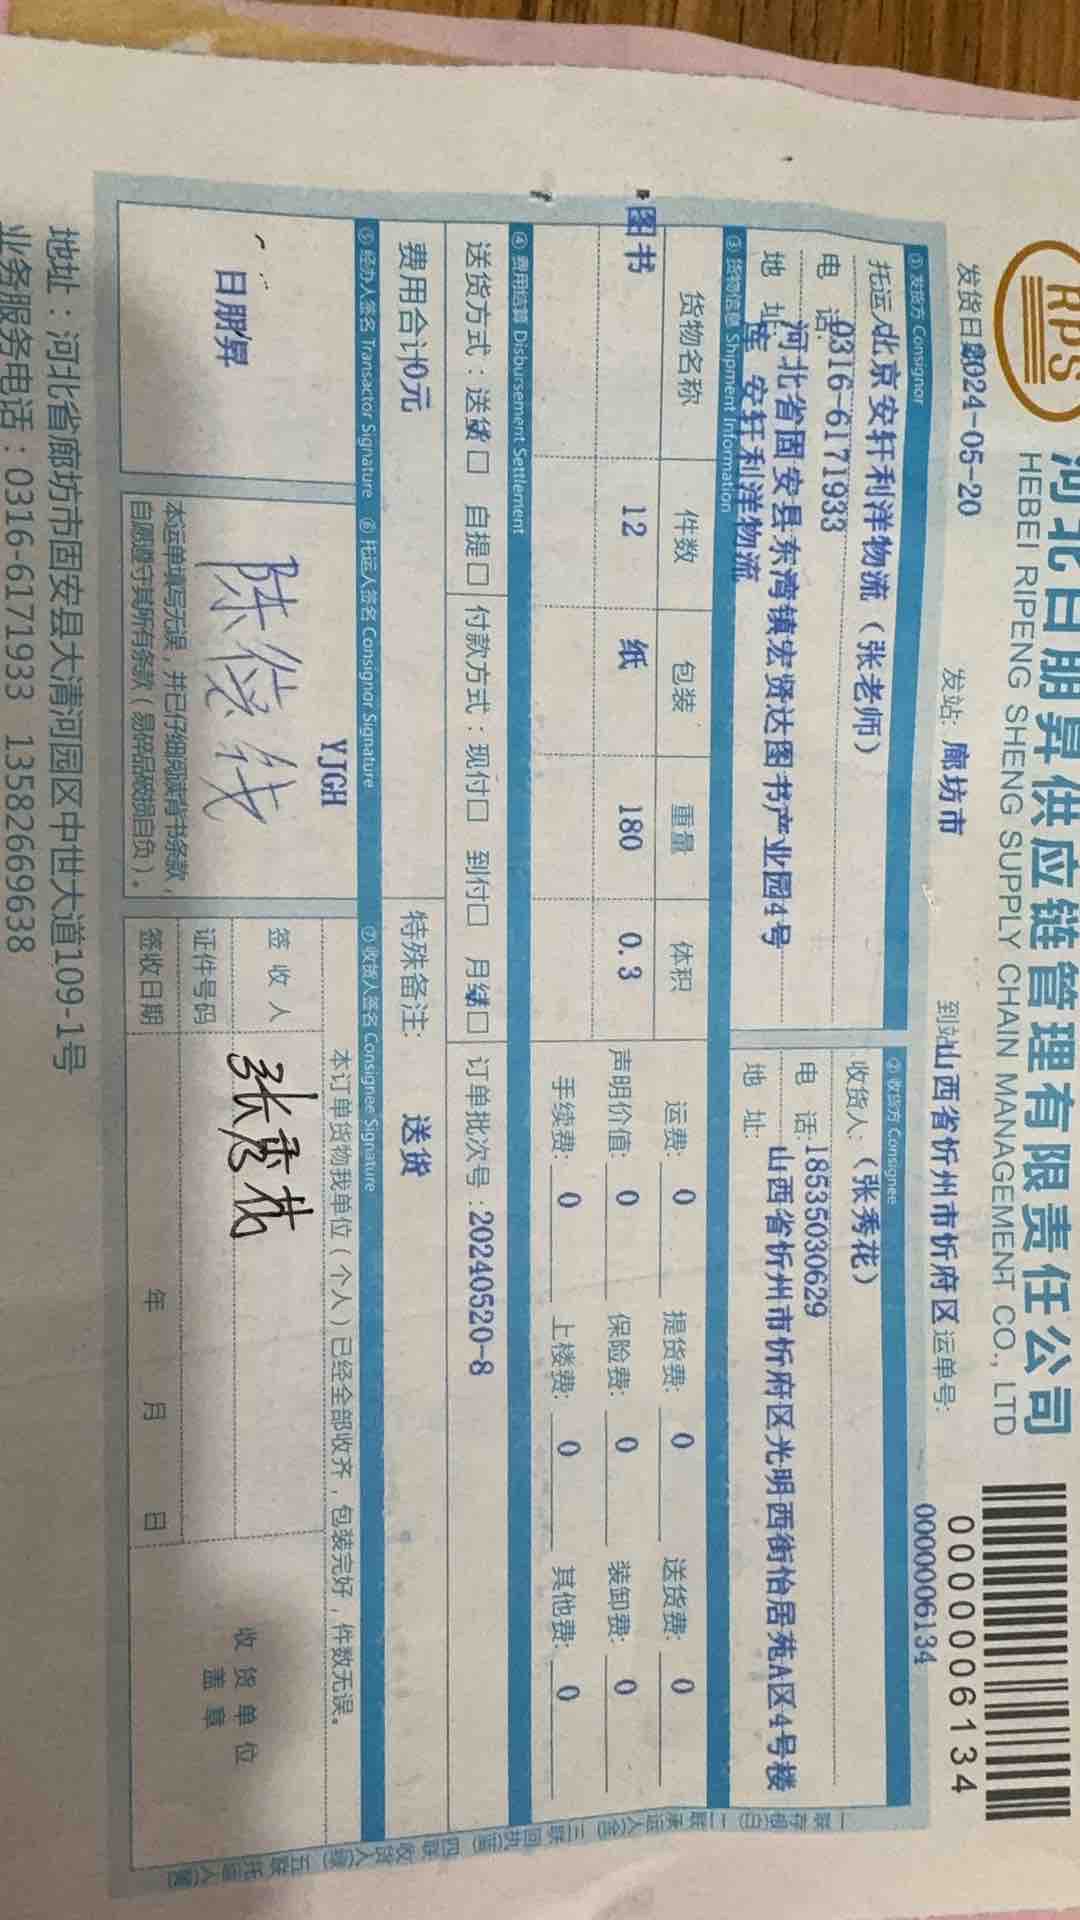 RPS
河北日朋昇供应链管理有限责任公司
HEBEI RIPENG SHENG SUPPLY CHAIN MANAGEMENT CO., LTD
0000006134
0000006134
发货日期 2024-05-20 发站: 廊坊市 到站 山西省忻州市忻府区 运单号:
① 发货方 Consignor
托运人 北京安轩利洋物流（张老师）
电 话: 0316-6171933
地 址: 河北省固安县东湾镇宏贤达图书产业园4号
库 安轩利洋物流
② 收货方 Consignee
收货人: （张秀花）
电 话: 18535030629
地 址: 山西省忻州市忻府区光明西街怡居苑A区4号楼
③ 货物信息 Shipment Information
货物名称 件数 包装 重量 体积
图书 12 纸 180 0.3
运费: 0 提货费: 0 送货费: 0
声明价值: 0 保险费: 0 装卸费: 0
手续费: 0 上楼费: 0 其他费: 0
④ 费用结算 Disbursement Settlement
送货方式：送货□ 自提□ 付款方式：现付□ 到付□ 月结□ 订单批次号:20240520-8
费用合计 0元 特殊备注: 送货
⑤ 经办人签名 Transactor Signature ⑥ 托运人签名 Consignor Signature ⑦ 收货人签名 Consignee Signature
日朋昇
YJGH
本运单填写无误，并已仔细阅读背书条款，
自愿遵守其所有条款（易碎品破损自负）。
本订单货物我单位（个人）已经全部收齐，包装完好，件数无误。
签 收 人 张秀花
证件号码
签收日期 年 月 日
收货单位
盖章
一联存根(白) 二联承运人 三联回执 四联收货人 五联托运人
地址：河北省廊坊市固安县大清河园区中世大道109-1号
业务服务电话：0316-6171933 13582669638